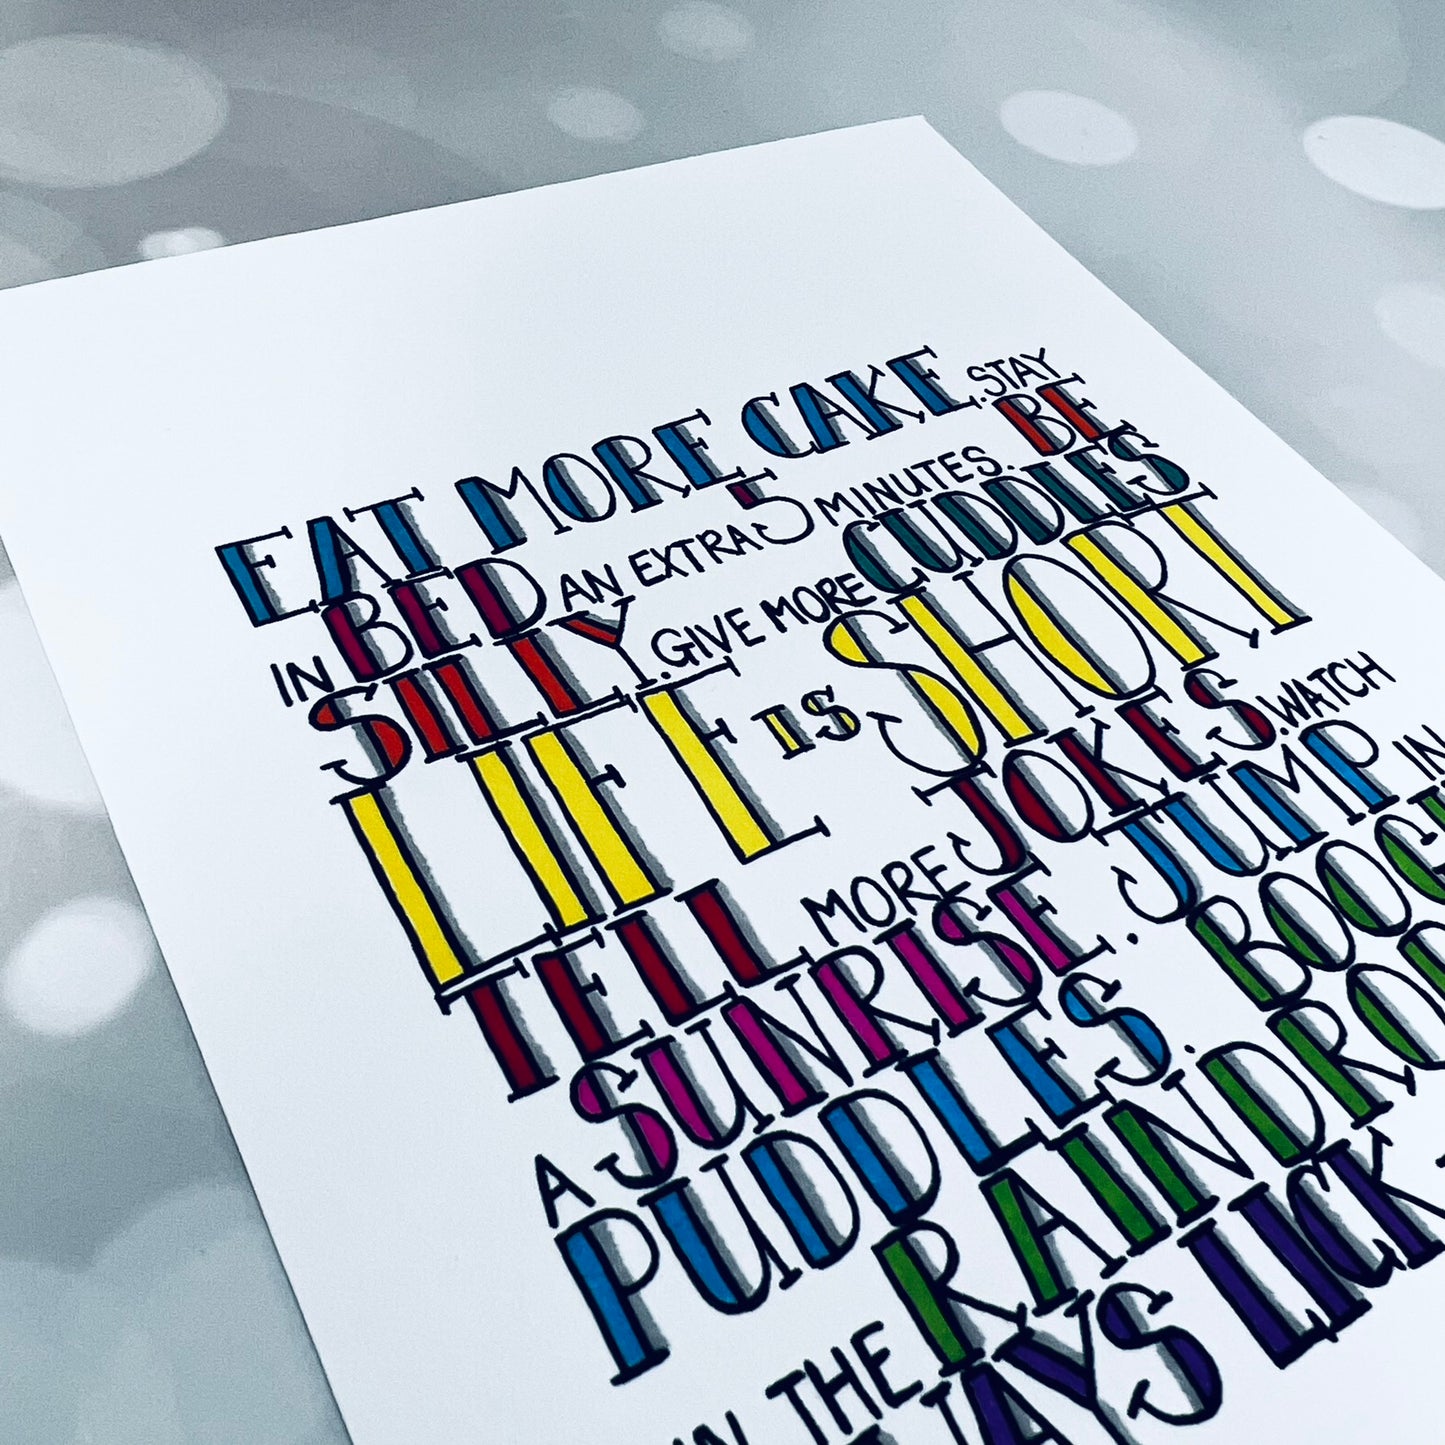 EAT MORE CAKE. STAY
IN BED AN EXTRA 5 MINUTES. BE
SILLY. GIVE MORE CUDDLES
LIFE IS SHORT
TELL MORE JOKES. WATCH
A SUNRISE. JUMP IN
PUDDLES. BOOG
IN THE RAINDRO
AYS LICK